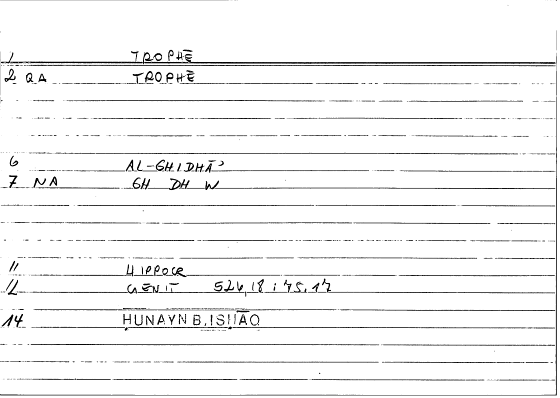 1 TROPHĒ
2 QA TROPHĒ
6 AL-GHIDHĀʾ
7 NA GH DH W
11 HIPPOCR
12 GENIT 524,18 : 75.17
14 ḤUNAYN B. ISḤĀQ